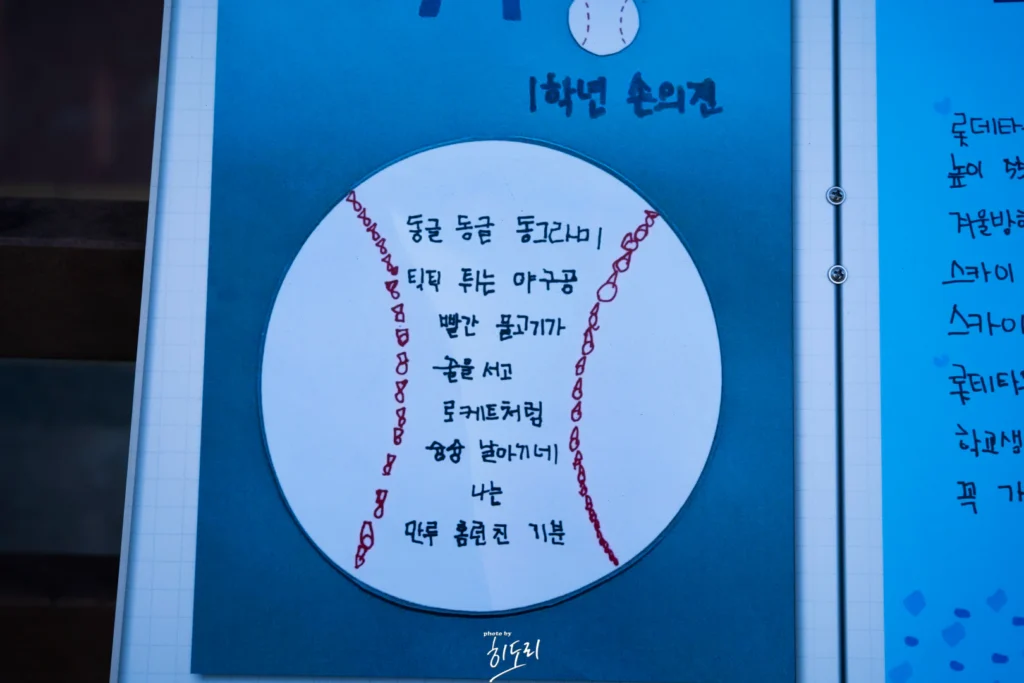 1학년 손의견
둥글 동글 동그라미
틱틱 튀는 야구공
빨간 물고기가
줄을 서고
로케트처럼
슝슝 날아가네
나는
만루 홈런친 기분
롯데타
높이
겨울방학
스카이
스카이
롯데타
학교생
꼭 가
photo by
히도리